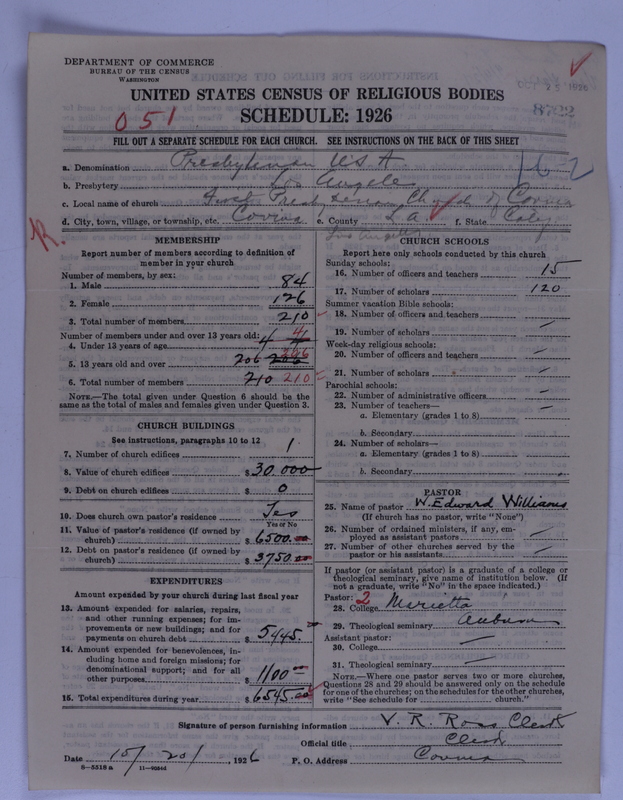 DEPARTMENT OF COMMERCE
BUREAU OF THE CENSUS
WASHINGTON
OCT 25 1926
8722
UNITED STATES CENSUS OF RELIGIOUS BODIES
SCHEDULE: 1926
051
FILL OUT A SEPARATE SCHEDULE FOR EACH CHURCH. SEE INSTRUCTIONS ON THE BACK OF THIS SHEET
16-2
a. Denomination Presbyterian USA
b. Presbytery Los Angeles
c. Local name of church First Presbyterian Church of Covina
d. City, town, village, or township, etc. Covina e. County L.A. f. State Calif
Los Angeles
R.
MEMBERSHIP
Report number of members according to definition of
member in your church
Number of members, by sex:
1. Male 84
2. Female 126
3. Total number of members 210
Number of members under and over 13 years old:
4. Under 13 years of age 4 4
5. 13 years old and over 206 206 206
6. Total number of members 210 210
NOTE.—The total given under Question 6 should be
the same as the total of males and females given under Question 3.
CHURCH BUILDINGS
See instructions, paragraphs 10 to 12
7. Number of church edifices 1
8. Value of church edifices $ 30000
9. Debt on church edifices $ 0
10. Does church own pastor's residence Yes
Yes or No
11. Value of pastor's residence (if owned by
church) $ 6500.00
12. Debt on pastor's residence (if owned by
church) $ 3750.00
EXPENDITURES
Amount expended by your church during last fiscal year
13. Amount expended for salaries, repairs,
and other running expenses; for im-
provements or new buildings; and for
payments on church debt $ 5445
14. Amount expended for benevolences, in-
cluding home and foreign missions; for
denominational support; and for all
other purposes $ 1100
15. Total expenditures during year $ 6545.00
CHURCH SCHOOLS
Report here only schools conducted by this church
Sunday schools:
16. Number of officers and teachers 15
17. Number of scholars 120
Summer vacation Bible schools:
18. Number of officers and teachers
19. Number of scholars —
Week-day religious schools:
20. Number of officers and teachers —
21. Number of scholars —
Parochial schools:
22. Number of administrative officers —
23. Number of teachers— —
a. Elementary (grades 1 to 8)
b. Secondary
24. Number of scholars—
a. Elementary (grades 1 to 8)
b. Secondary
PASTOR
25. Name of pastor W. Edward Williams
(If church has no pastor, write "None")
26. Number of ordained ministers, if any, em-
ployed as assistant pastors —
27. Number of other churches served by the
pastor or his assistants —
If pastor (or assistant pastor) is a graduate of a college or
theological seminary, give name of institution below. (If
not a graduate, write "No" in the space indicated.)
Pastor: 2
28. College Marietta
29. Theological seminary Auburn
Assistant pastor:
30. College —
31. Theological seminary —
NOTE.—Where one pastor serves two or more churches,
Questions 28 and 29 should be answered only on the schedule
for one of the churches; on the schedules for the other churches,
write "See schedule for church."
Signature of person furnishing information V. R. Ross Clerk
Official title Clerk
Date 10/20/, 1926 P. O. Address Covina
8—5518a 11—9284d